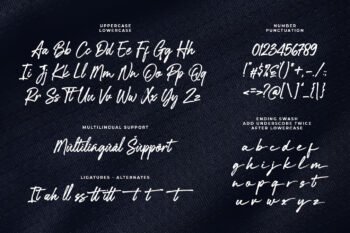 UPPERCASE
LOWERCASE
Aa Bb Cc Dd Ee Ff Gg Hh
Ii Jj Kk Ll Mm Nn Oo Pp Qq
Rr Ss Tt Uu Vv Ww Xx Yy Zz
NUMBER
PUNCTUATION
0123456789
MULTILINGUAL SUPPORT
Multilingual Support
LIGATURES - ALTERNATES
It uh ll ss tt itt t t t
ENDING SWASH
ADD UNDERSCORE TWICE
AFTER LOWERCASE
a b c d e f
g h i j k l m
n o p q r s t
u v w x y z